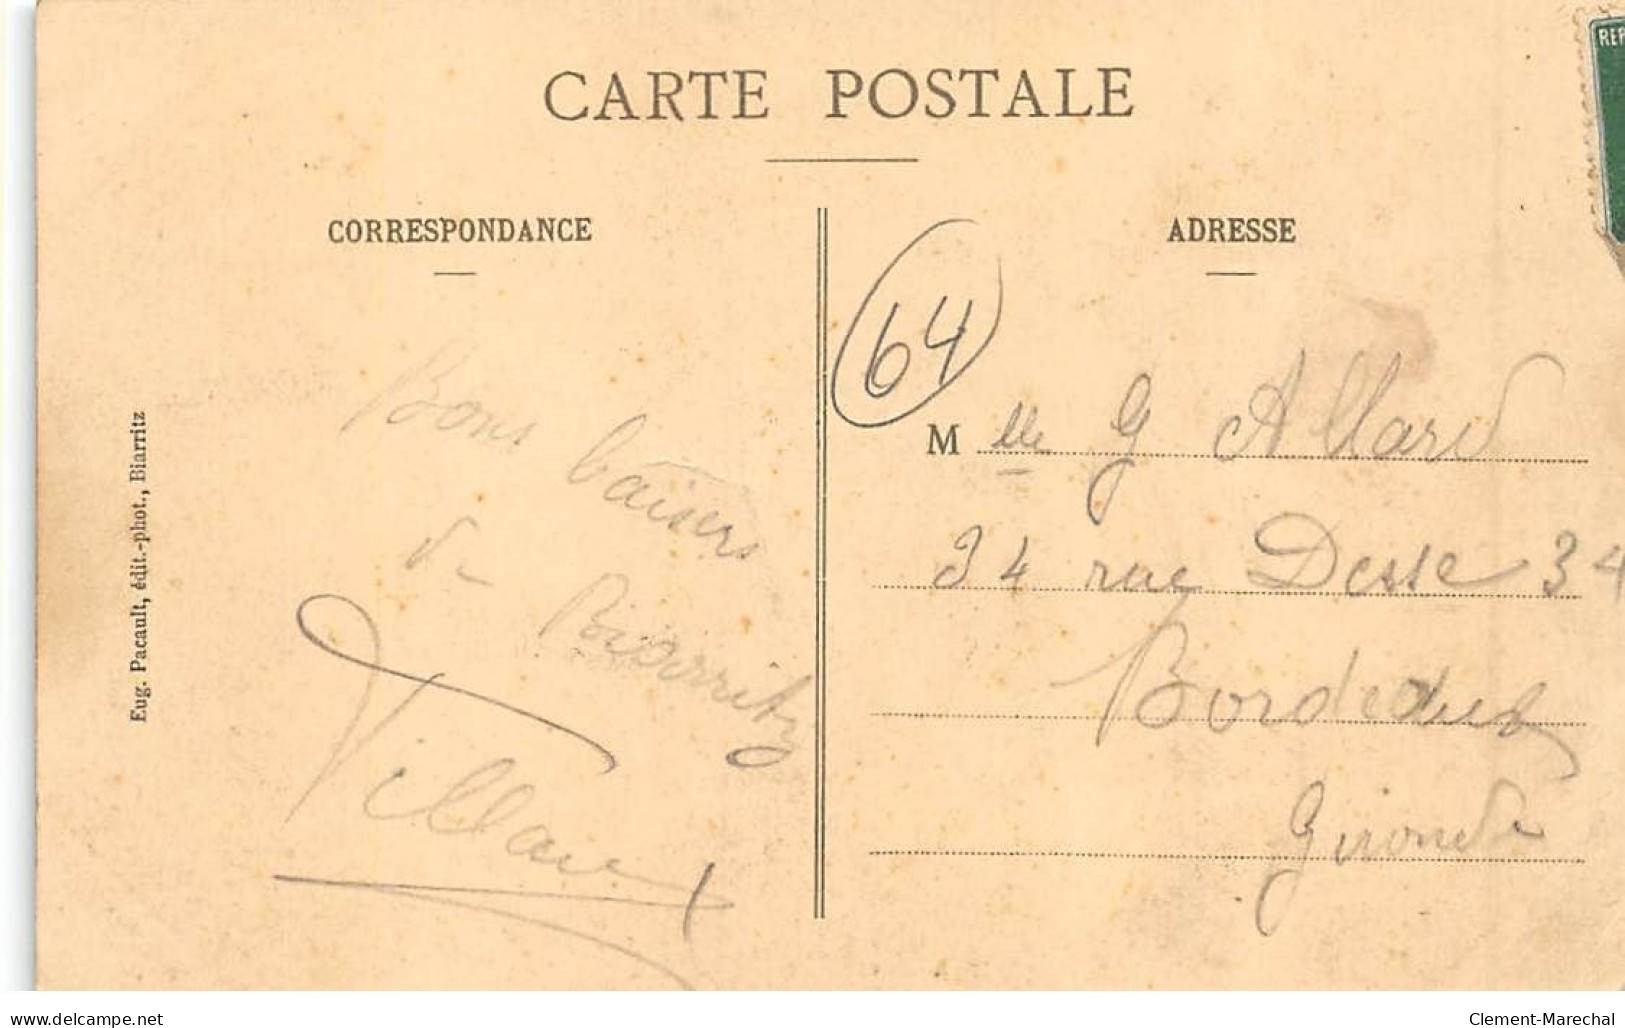 CARTE POSTALE
CORRESPONDANCE
Bons baisers
de
Biarritz
Eug. Pacault, édit.-phot., Biarritz
64
ADRESSE
REP
M lle G Allard
34 rue Desse 34
Bordeaux
Gironde
www.delcampe.net
Clement-Marechal